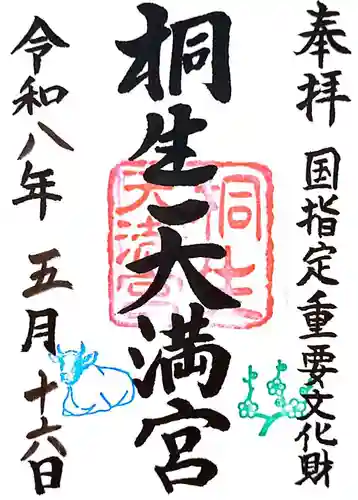 奉拝
国指定重要文化財
桐生天満宮
桐生天満宮
令和八年 五月十六日